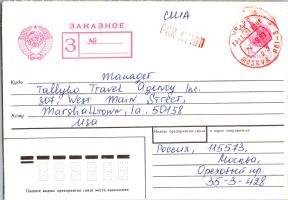 США
ЗАКАЗНОЕ
З №
PAR AVION
Куда Manager
Tallyho Travel Agency Inc.
307, West Main Street,
Кому Marshalltown, Ia. 50158
USA
Индекс предприятия связи и адрес отправителя
Россия, 115573,
Москва,
Ореховый пр.
35-3-428
Пишите индекс предприятия связи места назначения